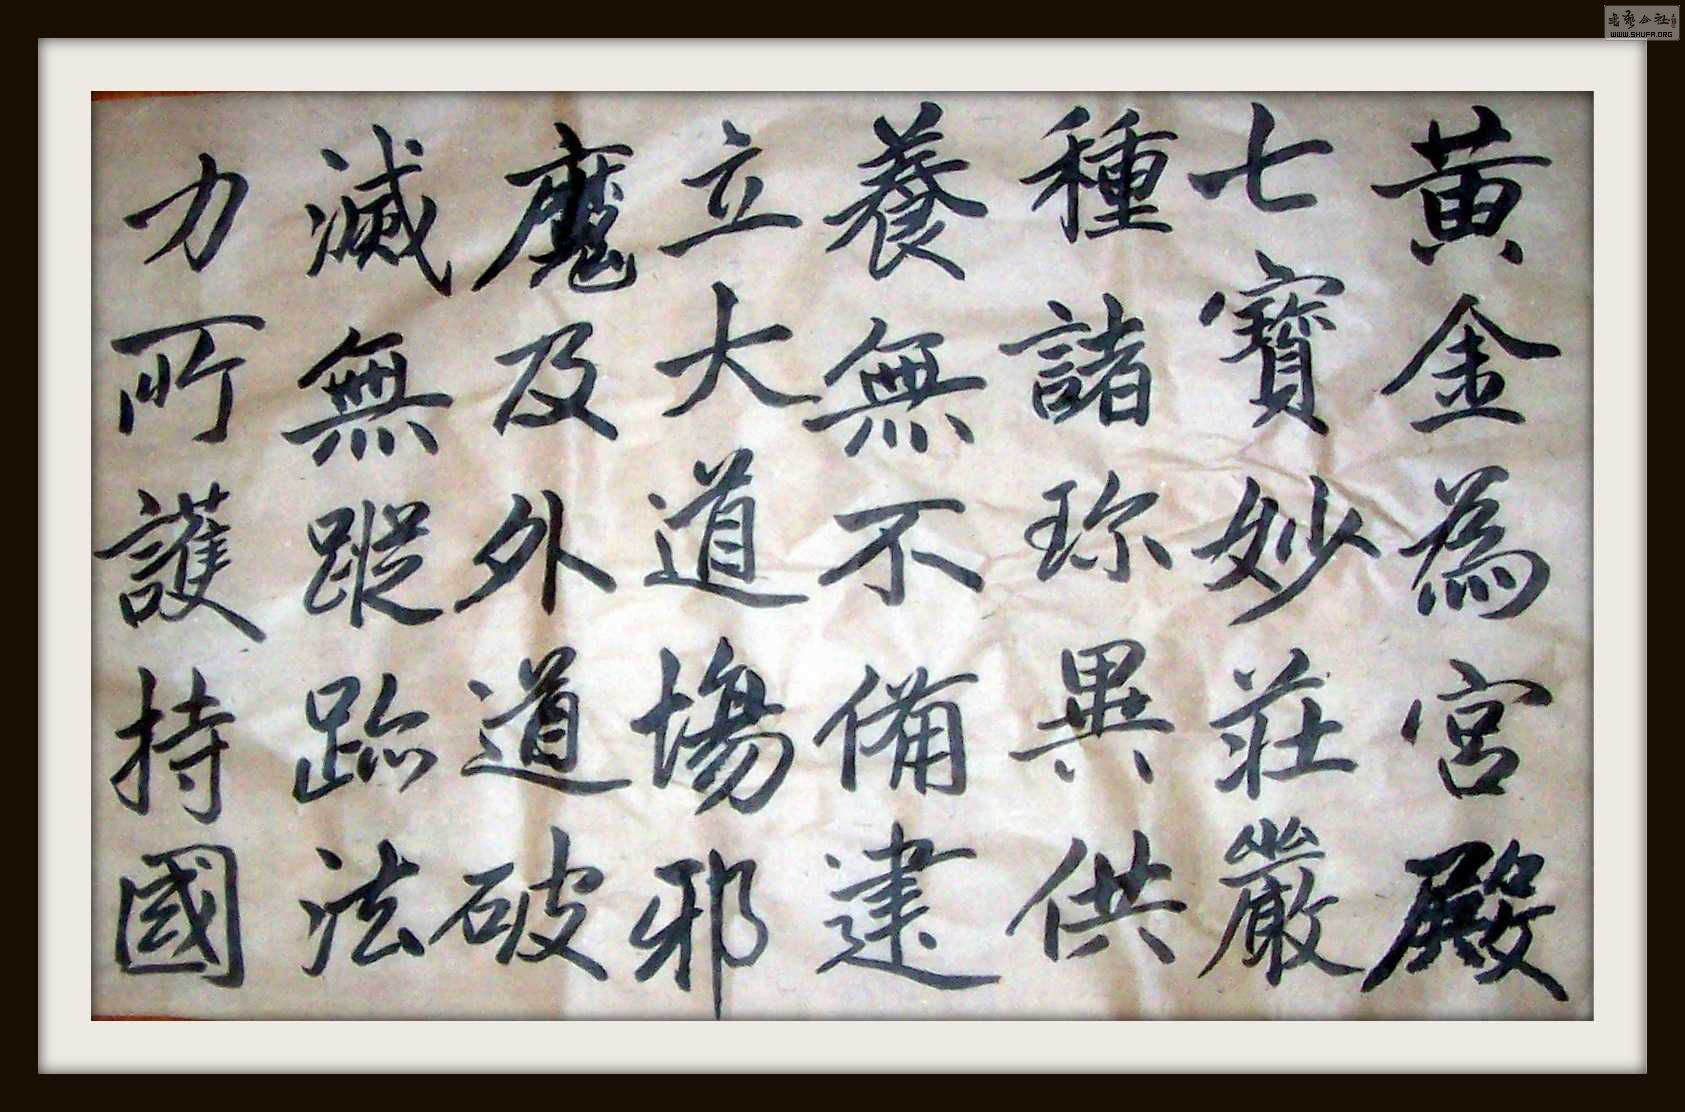 黄金為宮殿
七寶妙莊嚴
種諸珎異供
養無不備建
立大道場邪
魔及外道破
滅無蹤跡法
力所護持國
書藝公社
WWW.SHUFA.ORG